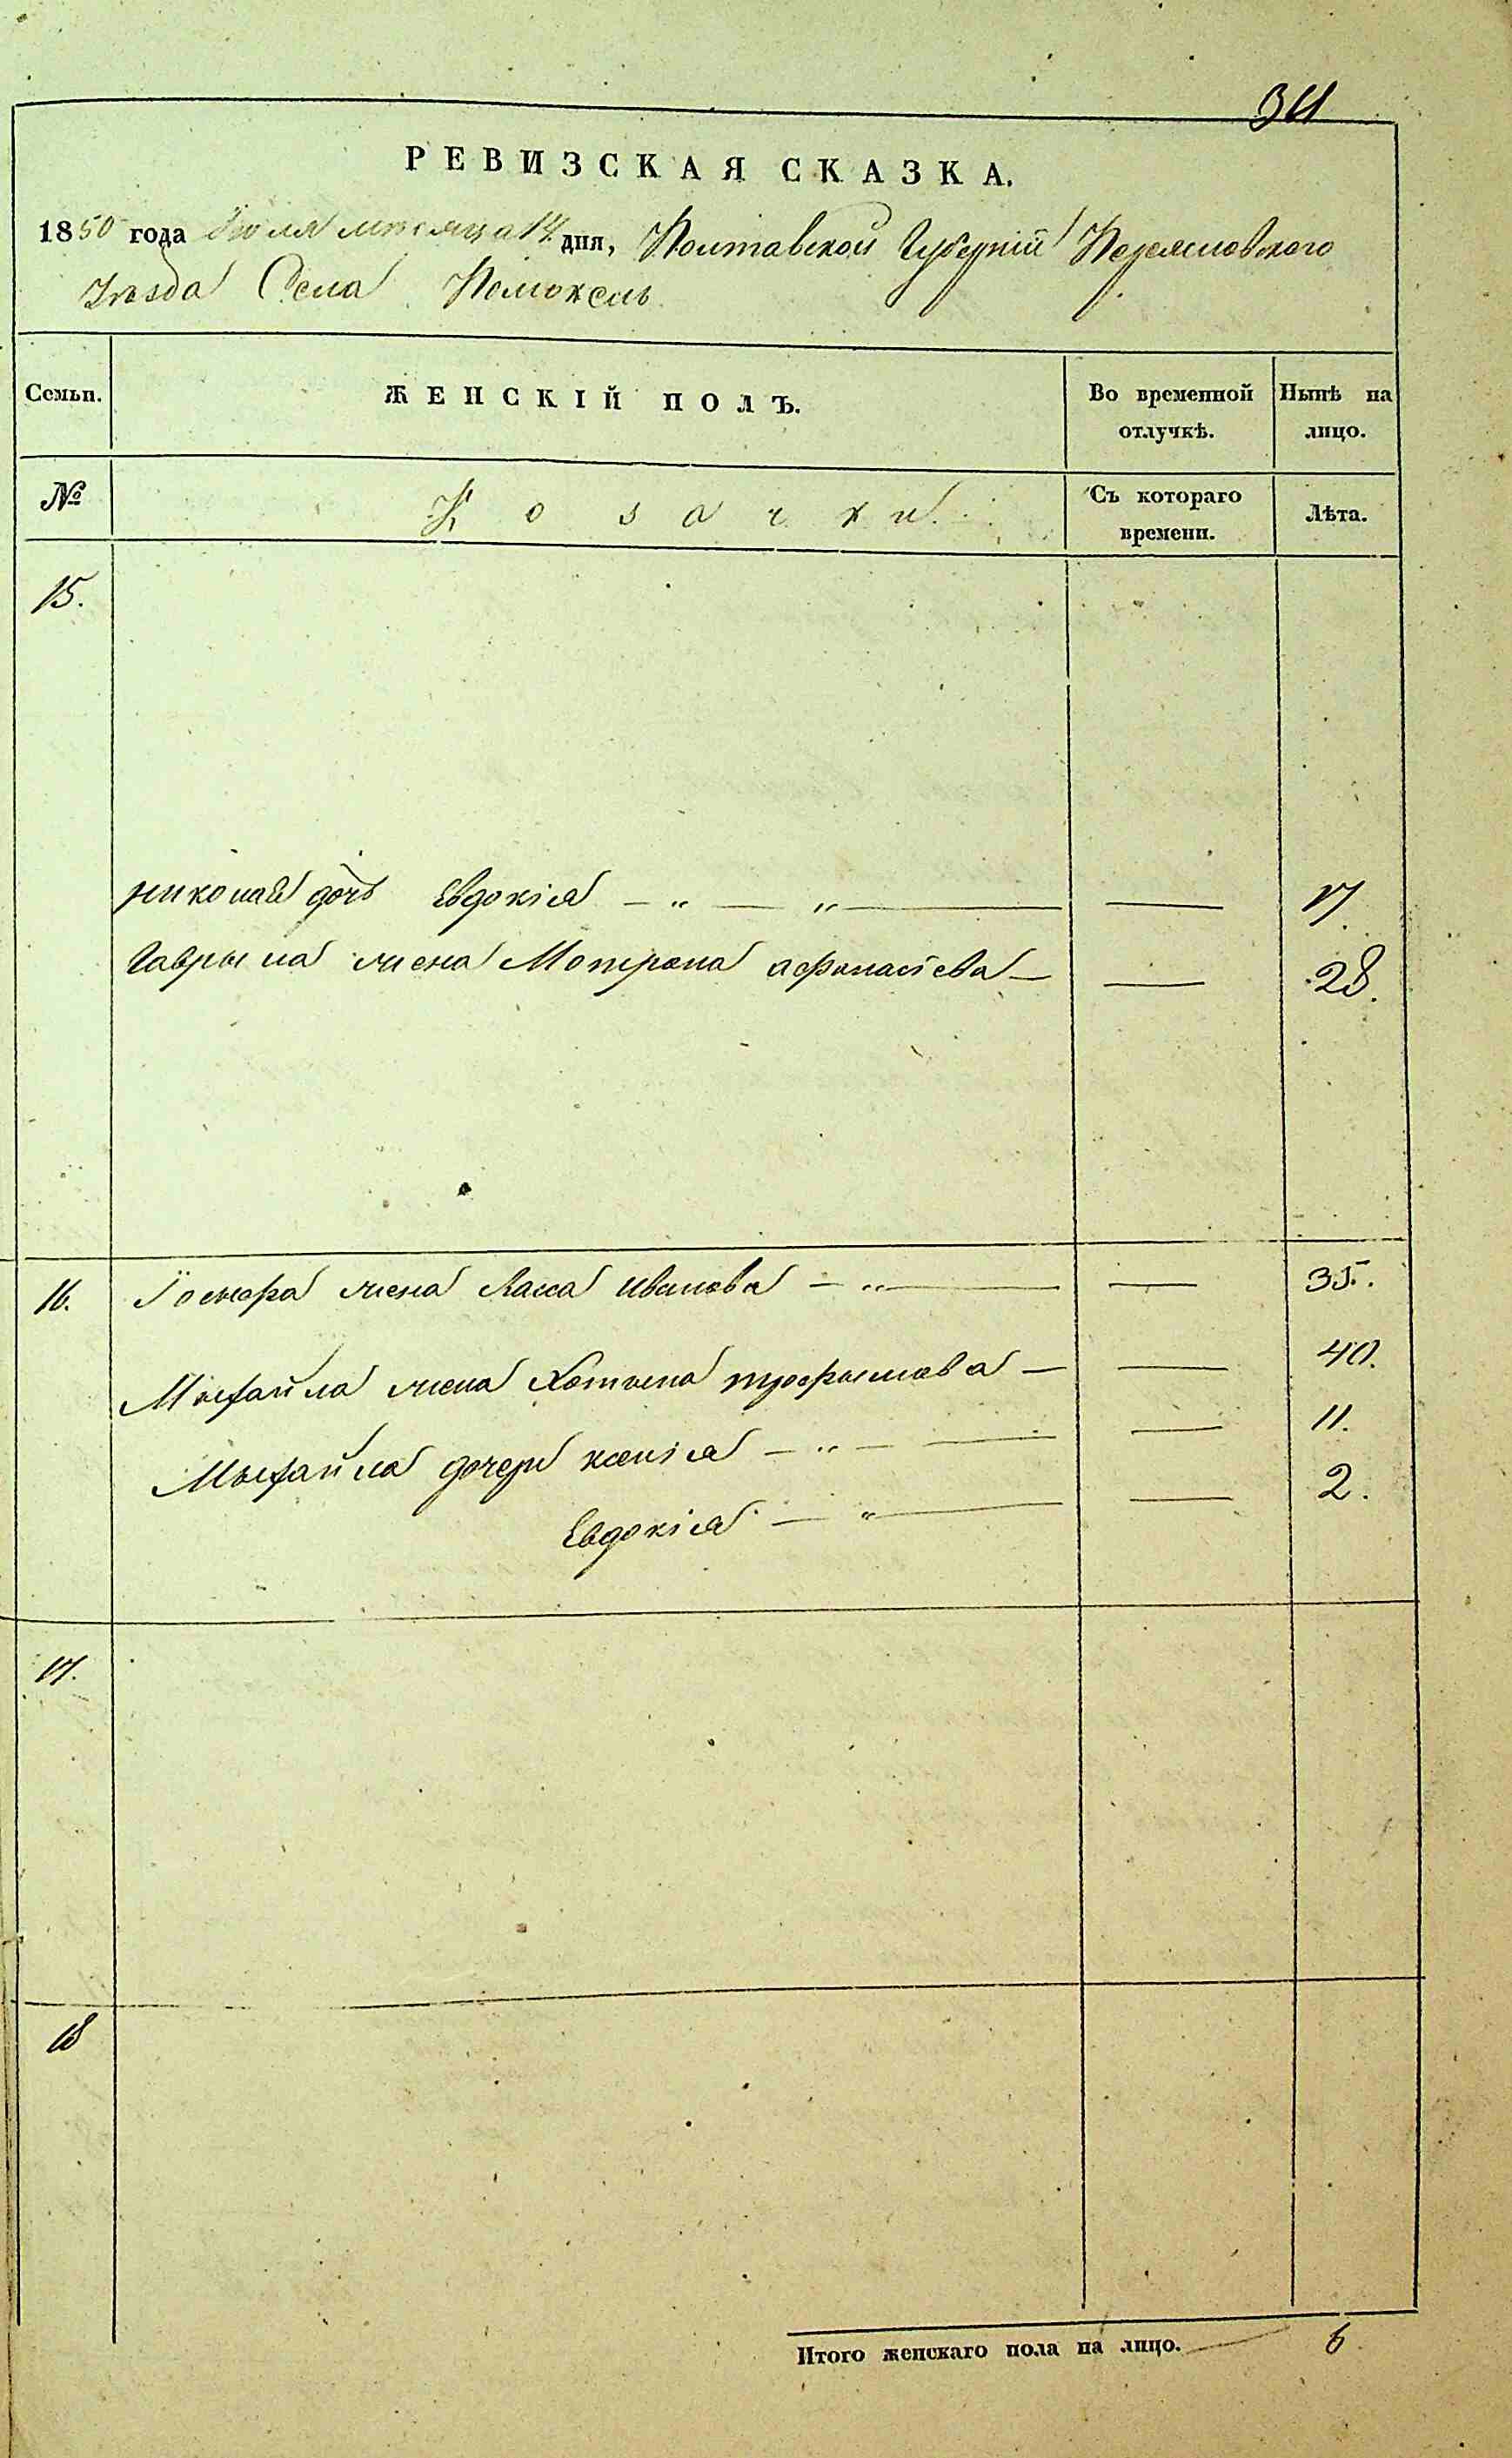 34
РЕВИЗСКАЯ СКАЗКА.
1850 года Июля месяца 14 дня, Полтавской Губерніи Переясловского
Уезда Села Помокель
Семьи. ЖЕНСКІЙ ПОЛЪ. Во временной отлучкѣ. Нынѣ на лицо.
№ Козачки. Съ котораго времени. Лѣта.
15.
николая дочь Евдокія — „ — „ — — 17.
Гаврыла жена Мотрона афанасіева — — 28.
16. жена иванова — „ — — 35.
Мыхайла жена Хотына трофымова — — 40.
Мыхайла дочери ксенія — „ — — 11.
Евдокія — „ — — 2.
17.
18
Итого женскаго пола на лицо. 6